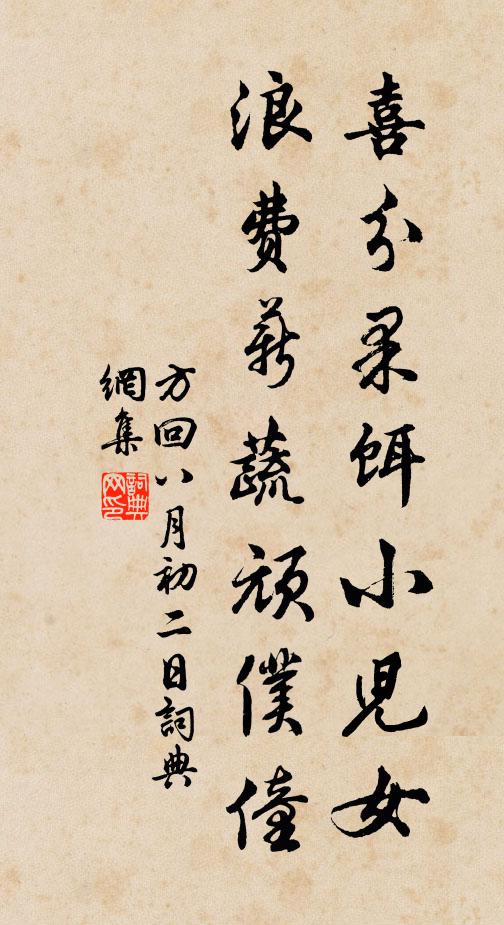 喜分果餌小兒女
浪費薪蔬頑僕僮
方回八月初二日詞典
網集
詞典網印